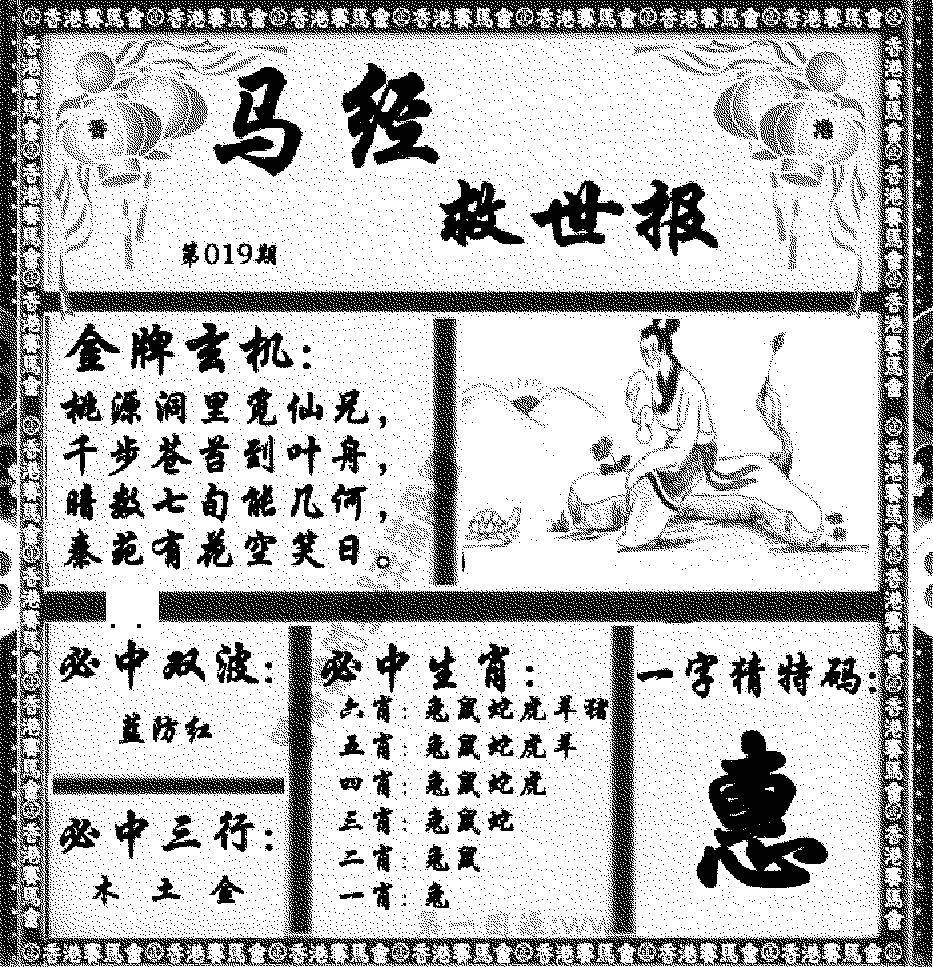 香港赛馬會香港赛馬會香港赛馬會香港赛馬會香港赛馬會香港赛馬會香港赛馬會
香
港
马经
救世报
第019期
金牌玄机：
桃源洞里觅仙兄，
千步苍苔到叶舟，
暗数七旬能几何，
秦苑有花空笑日。
必中双波：
蓝防红
必中三行：
木 土 金
必中生肖：
六肖：兔鼠蛇虎羊猪
五肖：兔鼠蛇虎羊
四肖：兔鼠蛇虎
三肖：兔鼠蛇
二肖：兔鼠
一肖：兔
一字猜特码：
惠
香港赛馬會香港赛馬會香港赛馬會香港赛馬會香港赛馬會香港赛馬會香港赛馬會